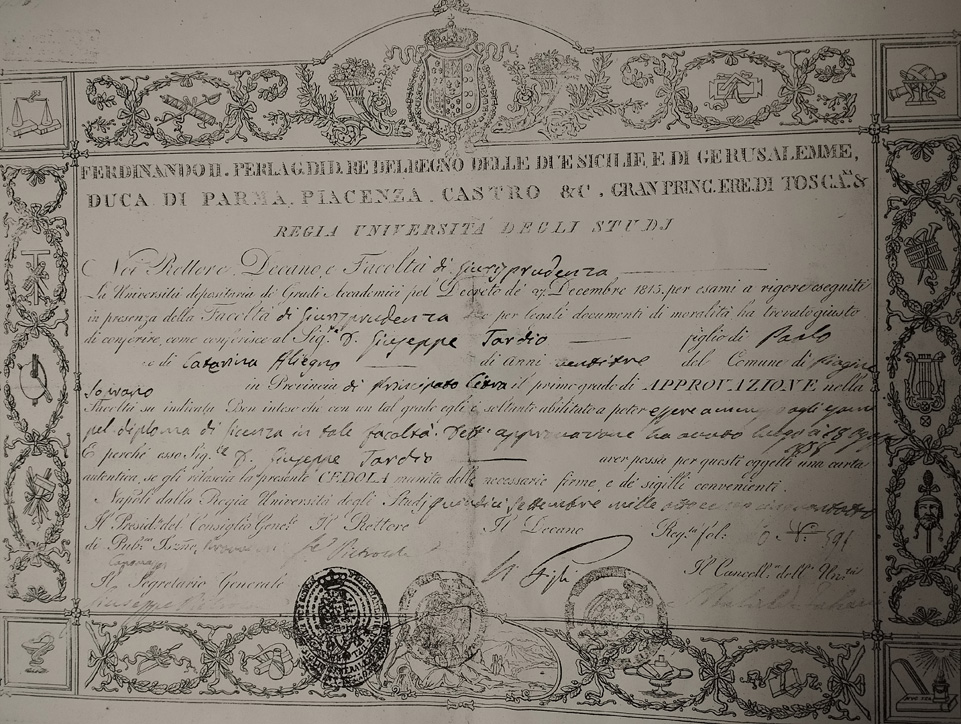 FERDINANDO II. PER LA G. DI D. RE DEL REGNO DELLE DUE SICILIE E DI GERUSALEMME,
DUCA DI PARMA, PIACENZA, CASTRO &C, GRAN PRINC. ERE. DI TOSCA.NA &
REGIA UNIVERSITÁ DEGLI STUDJ
Noi Rettore, Decano, e Facoltà di Giurisprudenza
La Università depositaria de' Gradi Accademici pel Decreto de' 27. Decembre 1815. per esami a rigore eseguiti
in presenza della Facoltà di Giurisprudenza e per legali documenti di moralità ha trovato giusto
di conferire, come conferisce al Sig.r D. Giuseppe Tardio figlio di Paolo
e di Catarina Aliegro di Anni ventitre del Comune di Piagine
Soprano in Provincia di Principato Citra il primo grado di APPROVAZIONE nella
Facoltà su indicata. Ben inteso che con un tal grado egli è soltanto abilitato a poter essere agli esami
pel diploma di licenza in tale facoltà. Detta approvazione ha avuto luogo
E perchè esso Sig.re D. Giuseppe Tardio aver possa per questi oggetti una carta
autentica, se gli rilascia la presente CEDOLA munita delle necessarie firme, e de' sigilli convenienti.
Napoli dalla Regia Università degli Studj quindici Settembre mille
Il Presid.te del Consiglio Gene.le Il Rettore Il Decano Reg. fol:
di Pub.ca Istr.ne
Il Segretario Generale Il Cancell.re dell' Un.tà